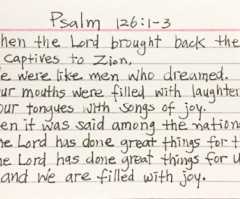 Psalm 126:1-3
hen the Lord brought back the
captives to Zion,
e were like men who dreamed.
ur mouths were filled with laughter
our tongues with songs of joy.
en it was said among the nation
he Lord has done great things for th
he Lord has done great things for u
and we are filled with joy.